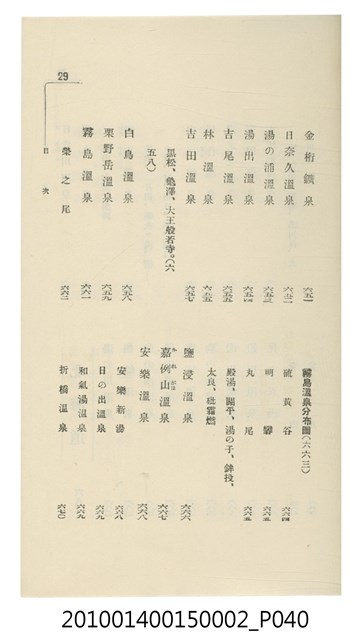 29
目次
金桁鑛泉 六五一
日奈久溫泉 六五一
湯の浦溫泉 六五三
湯出溫泉 六五四
吉尾溫泉 六五五
林溫泉 六五五
吉田溫泉 六五七
黑松、龜澤、大王般若寺。(六
五八)
白鳥溫泉 六五八
栗野岳溫泉 六五九
霧島溫泉 六六一
榮之尾 六六二
霧島溫泉分布圖(六六三)
硫黃谷 六六四
明礬 六六五
丸尾 六六五
殿湯、關平、湯の子、鉾投、
太良、砒霜燃
鹽浸溫泉 六六六
嘉例山溫泉 六六七
安樂溫泉 六六八
安樂新湯 六六八
日の出溫泉 六六九
和氣湯溫泉 六六九
折橋溫泉 六七〇
201001400150002_P040